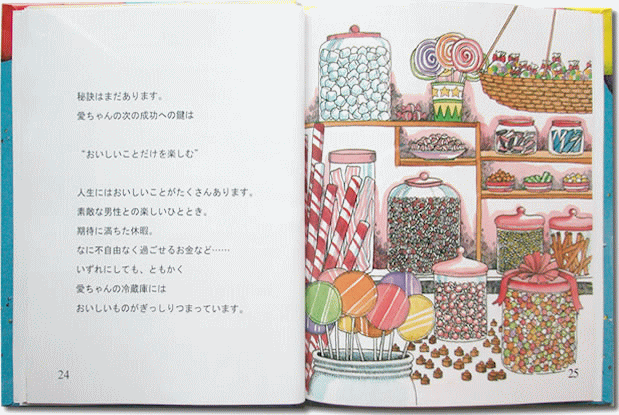 秘訣はまだあります。
愛ちゃんの次の成功への鍵は
“おいしいことだけを楽しむ”
人生にはおいしいことがたくさんあります。
素敵な男性との楽しいひととき。
期待に満ちた休暇。
なに不自由なく過ごせるお金など……
いずれにしても、ともかく
愛ちゃんの冷蔵庫には
おいしいものがぎっしりつまっています。
24
25